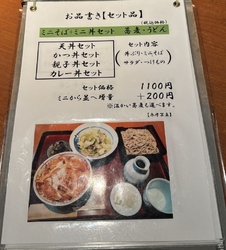 お品書き【セット品】
(税込価格)
ミニそば・ミニ丼セット 蕎麦・うどん
天丼セット
かつ丼セット
親子丼セット
カレー丼セット
セット内容
丼ぶり・ミニそば
サラダ・つけもの
セット価格 1100円
ミニから並へ増量 +200円
※温かい蕎麦も選べます。